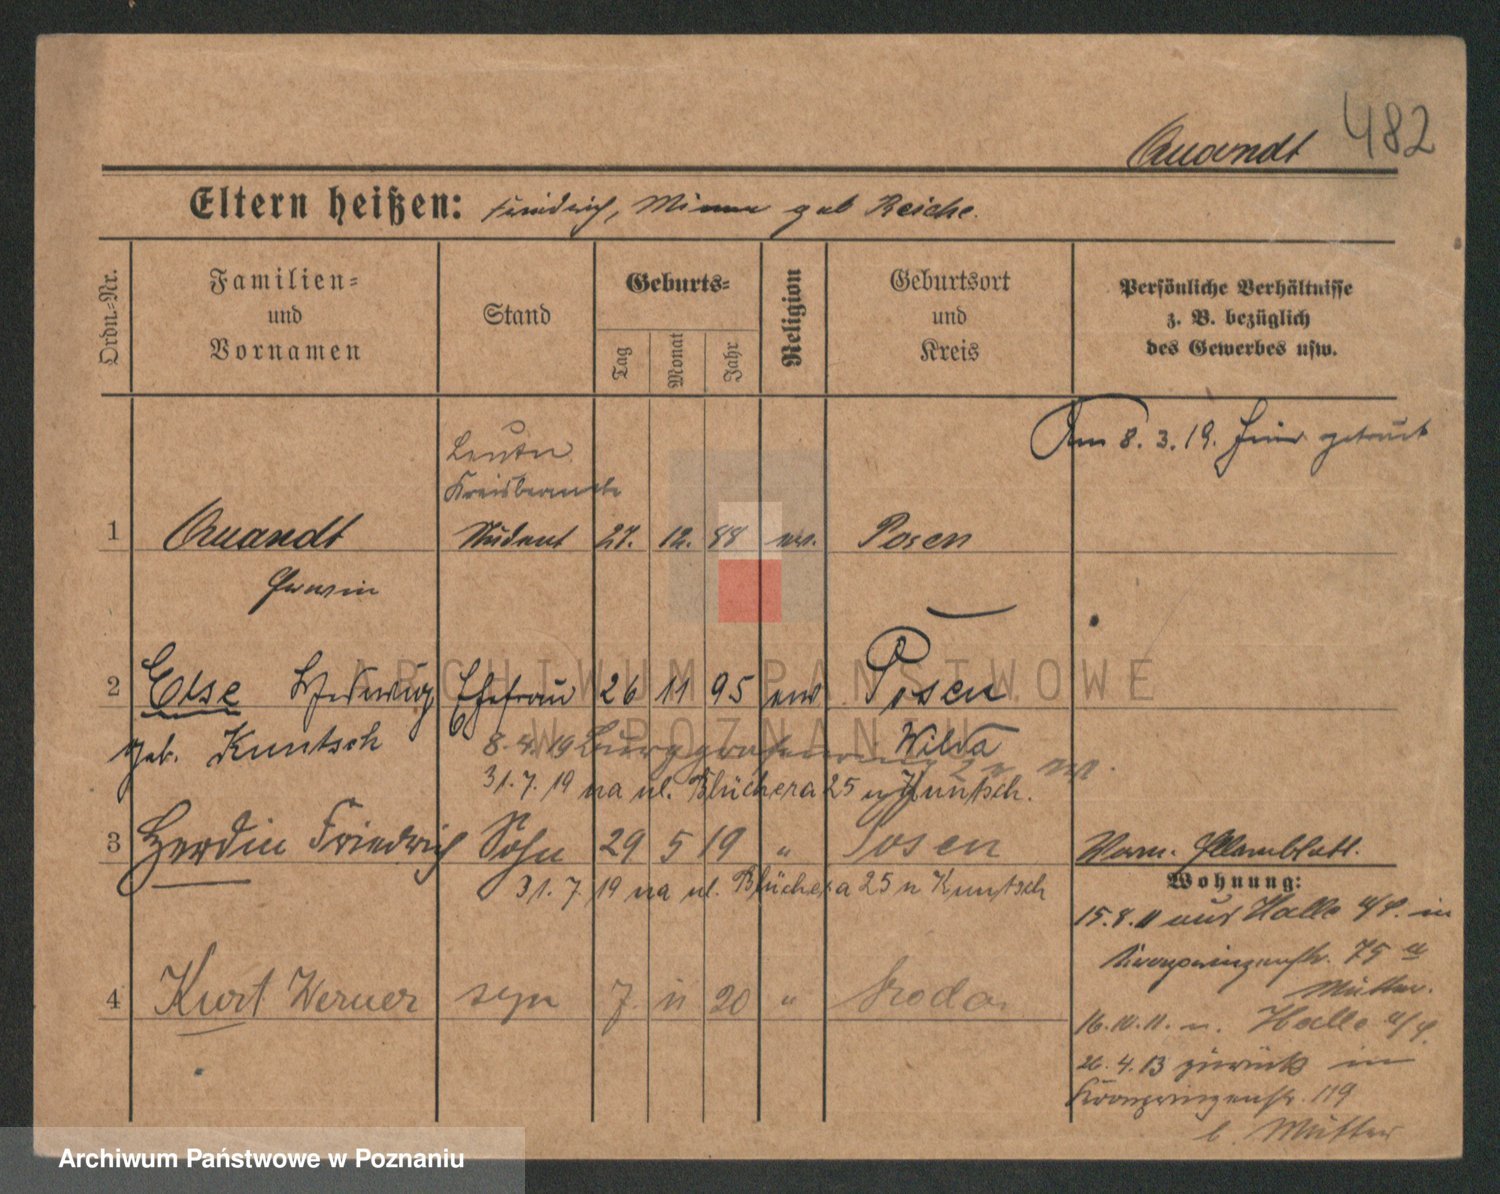 482
Quandt
Eltern heißen: Friedrich, Minna geb Reiche.
Ordn.-Nr.
Familien-
und
Vornamen
Stand
Geburts-
Tag
Monat
Jahr
Religion
Geburtsort
und
Kreis
Persönliche Verhältnisse
z. B. bezüglich
des Gewerbes usw.
Am 8. 3. 19. hier getraut
Leutn.
Kreisbeamter
1 Quandt Student 27. 12. 88 ev. Posen
Erwin
2 Else Hedwig Ehefrau 26 11 95 ev Posen
geb. Kuntsch Wilda
8. 4. 19
31. 7. 19 na ul. Blüchera 25 u Kuntsch.
3 Herdin Friedrich Sohn 29 5 19 " Posen
31. 7. 19 na ul. Blüchera 25 u Kuntsch
Wohnung:
15. 8. 11 aus Halle a/S. in
Kronprinzenstr. 75 a
Mutter.
4 Kurt Werner syn 7. 11 20 " Środa
16. 10. 11. n. Halle a/S.
26. 4. 13 zurück in
Kronprinzenstr. 119
b. Mutter
ARCHIWUM PAŃSTWOWE
W POZNANIU
Archiwum Państwowe w Poznaniu